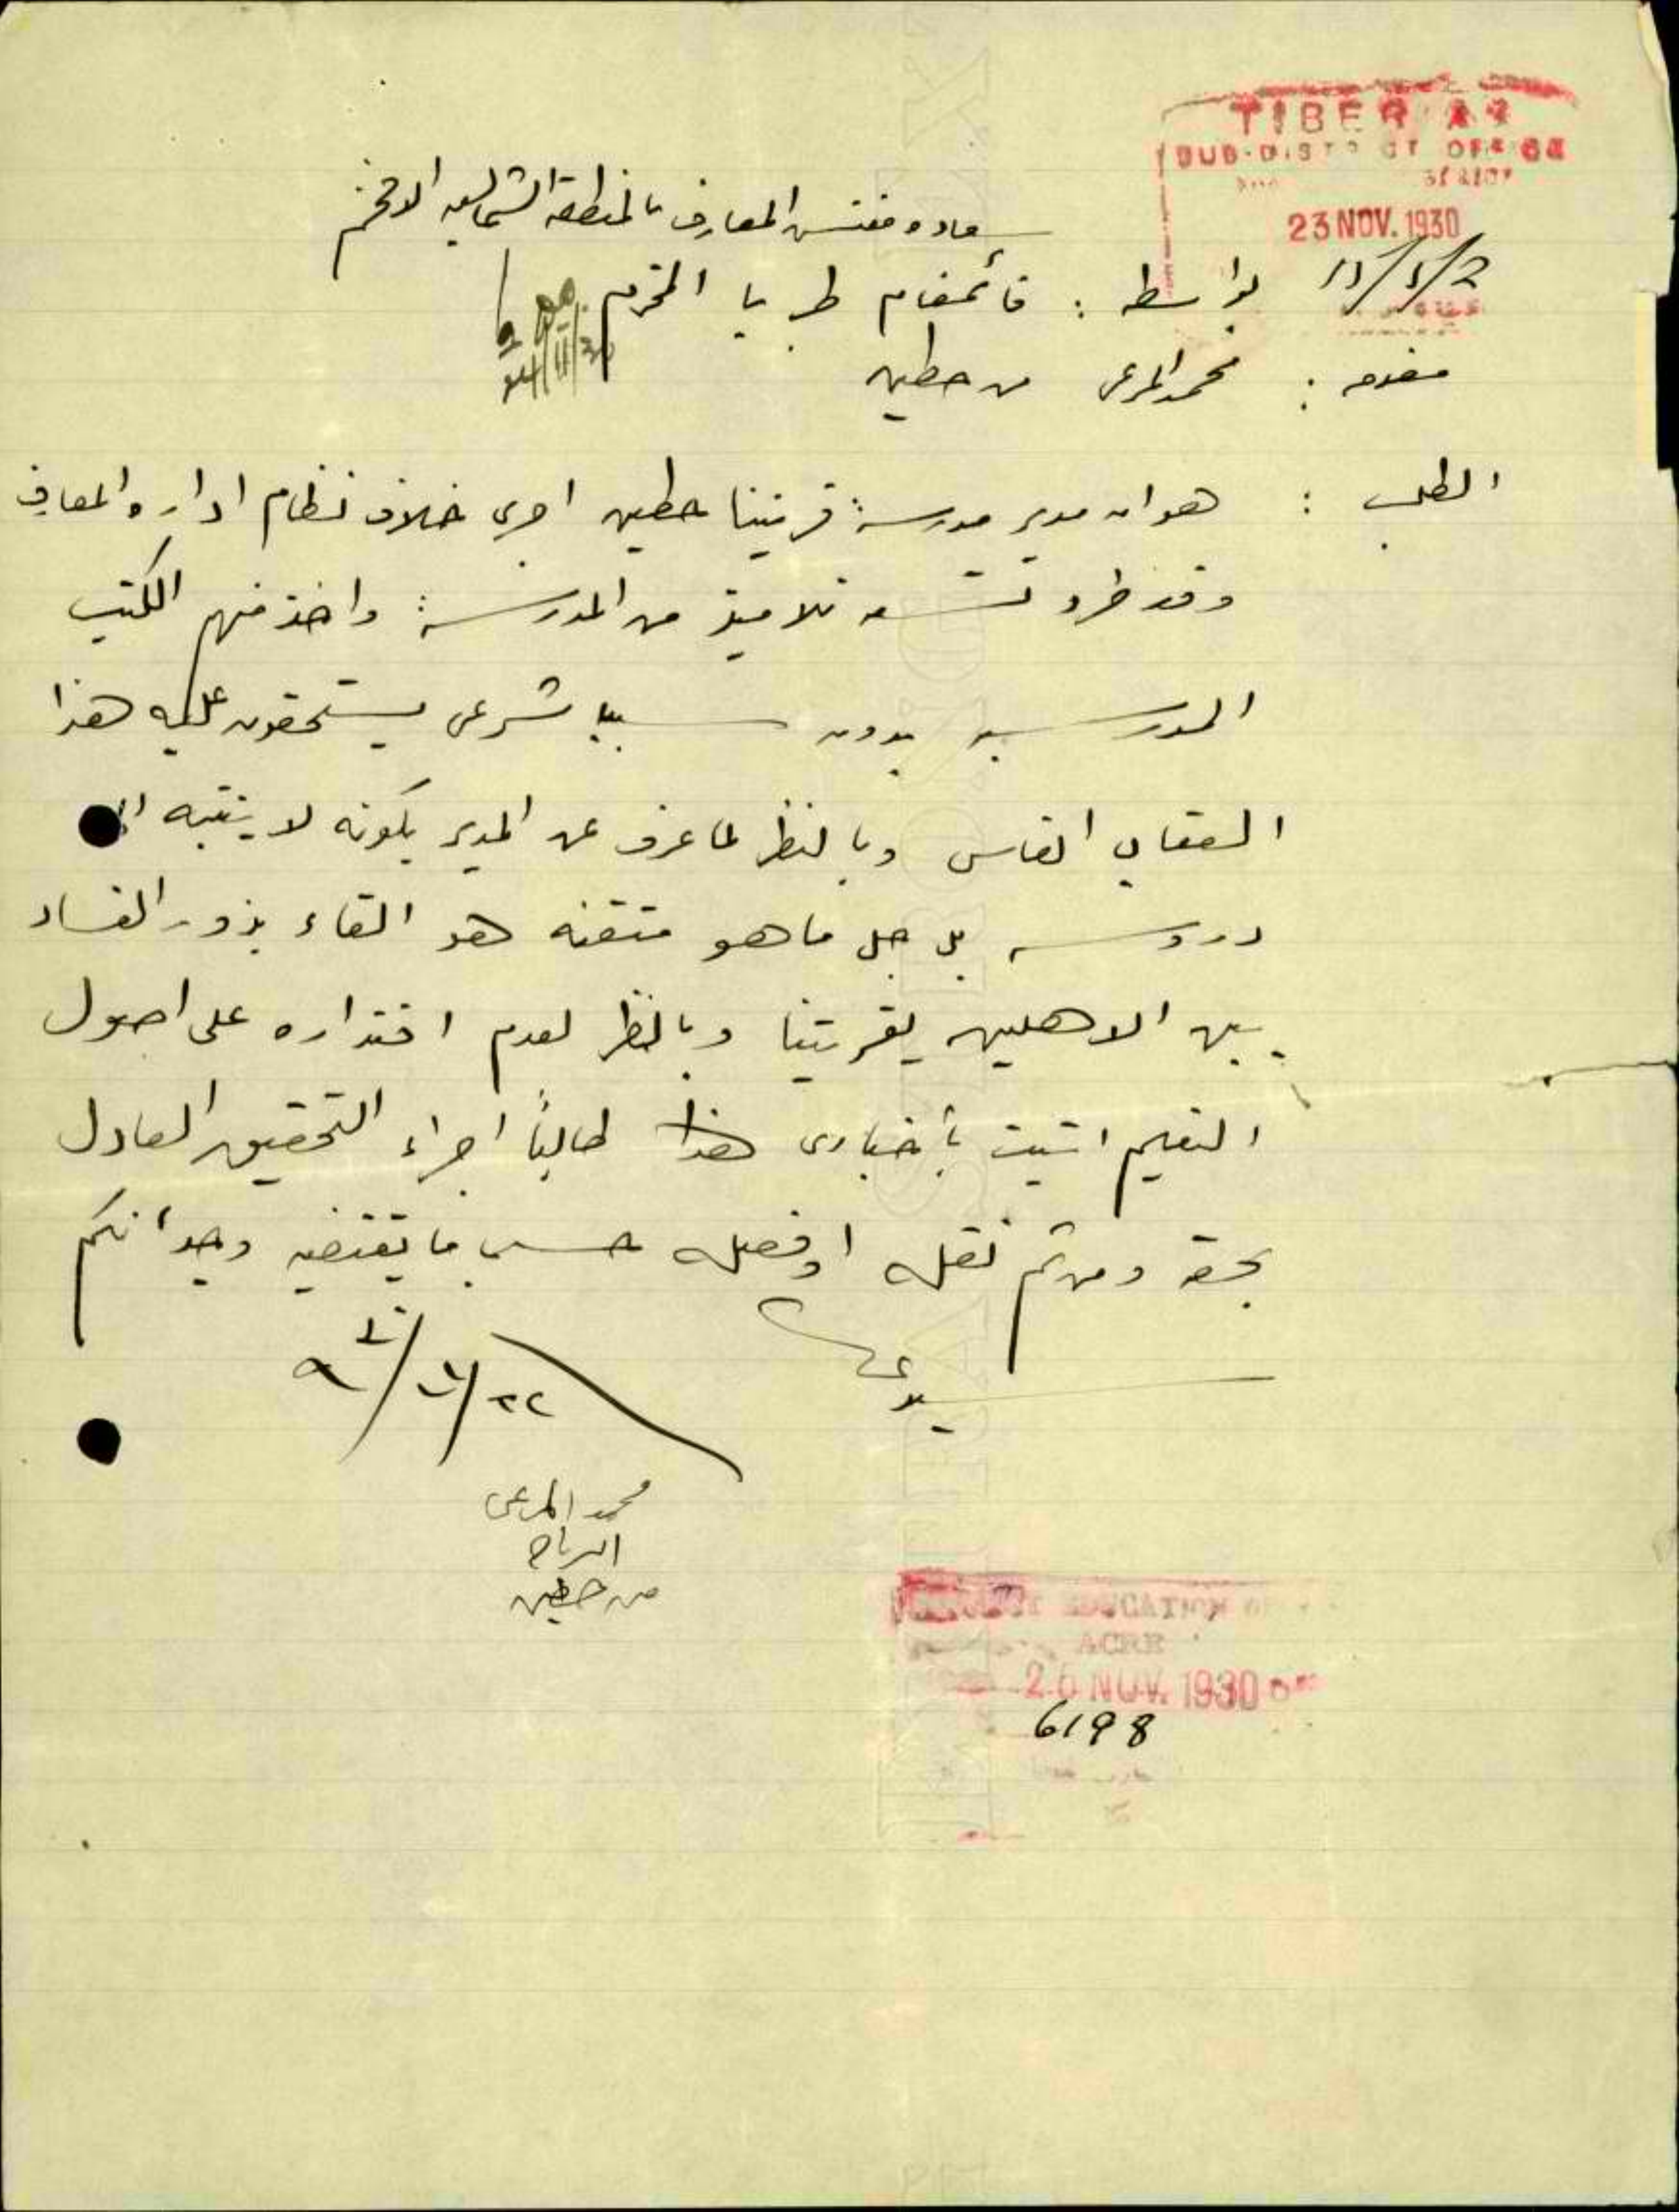 TIBERIAS
SUB-DISTRICT OFFICE
23 NOV. 1930
سعادة مفتش المعارف بالمنطقة الشمالية الافخم
11/1/2
بواسطة : قائمقام طبريا المحترم
مقدمه : محمد المرعي من حطين
الطلب : هو ان مدير مدرسة قريتنا حطين اجرى خلاف نظام ادارة المعارف
وقد طرد تسعه تلاميذ من المدرسة واخذ منهم الكتب
المدرسيه بدون سببا شرعي يستحقون عليه هذا
العقاب القاسي وبالنظر لما عرف عن المدير بكونه لا ينتبه الى
دروسه بل جل ما هو متقنه هو القاء بذور الفساد
بين الاهلين بقريتنا وبالنظر لعدم اقتداره على اصول
التعليم اتيت بأخباري هذا طالباً اجراء التحقيق العادل
بحقه ومن ثم نقله او فصله حسب ما يقتضيه وجدانكم
سيدي
محمد المرعي
من حطين
DISTRICT EDUCATION
ACRE
26 NOV. 1930
6198